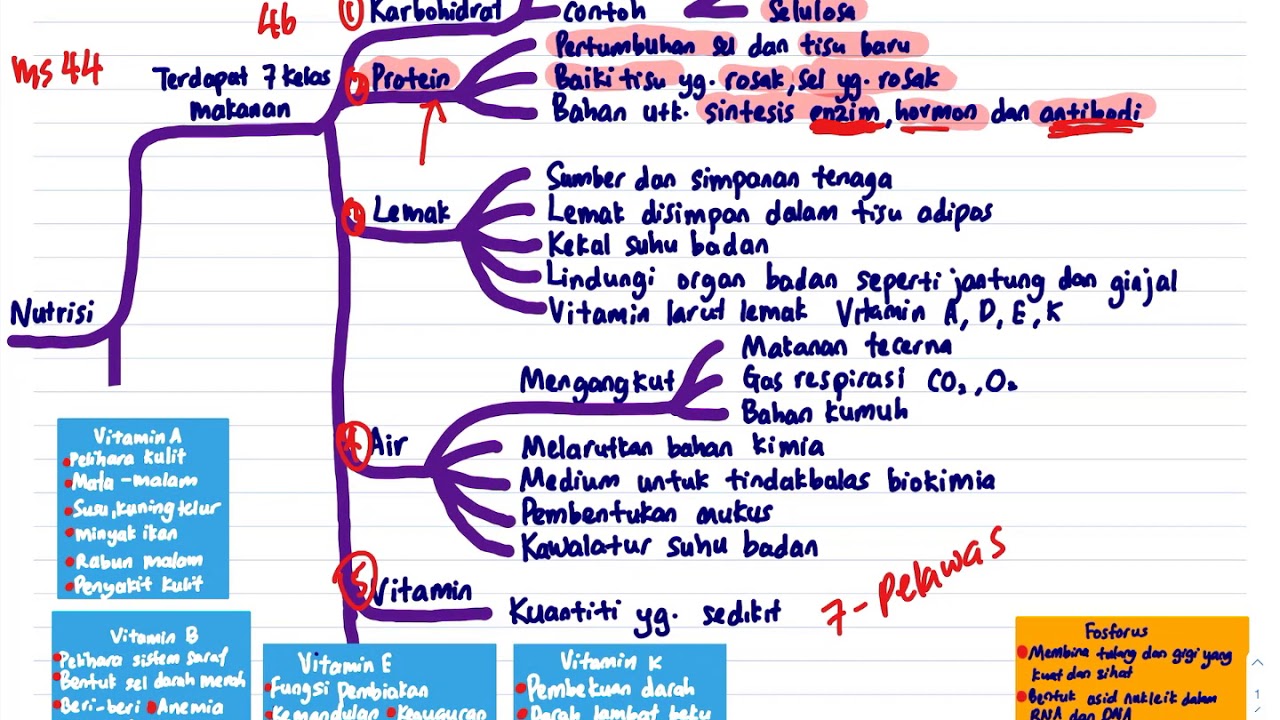 46
① Karbohidrat
contoh
Selulosa
ms 44
Terdapat 7 kelas
makanan
② Protein
Pertumbuhan sel dan tisu baru
Baiki tisu yg. rosak, sel yg. rosak
Bahan utk. sintesis enzim, hormon dan antibodi
Lemak
Sumber dan simpanan tenaga
Lemak disimpan dalam tisu adipos
Kekal suhu badan
Lindungi organ badan seperti jantung dan ginjal
Vitamin larut lemak Vitamin A, D, E, K
Nutrisi
④ Air
Mengangkut
Makanan tecerna
Gas respirasi CO₂, O₂
Bahan kumuh
Melarutkan bahan kimia
Medium untuk tindakbalas biokimia
Pembentukan mukus
Kawalatur suhu badan
⑤ Vitamin
Kuantiti yg. sedikit
7 - Pelawas
Vitamin A
Pelihara kulit
Mata - malam
Susu, kuning telur
minyak ikan
Rabun malam
Penyakit kulit
Vitamin B
Pelihara sistem saraf
Bentuk sel darah merah
Beri-beri Anemia
Vitamin E
Fungsi pembiakan
Kemandulan Keguguran
Vitamin K
Pembekuan darah
Darah lambat beku
Fosforus
Membina tulang dan gigi yang
kuat dan sihat
Bentuk asid nukleik dalam
RNA dan DNA
1